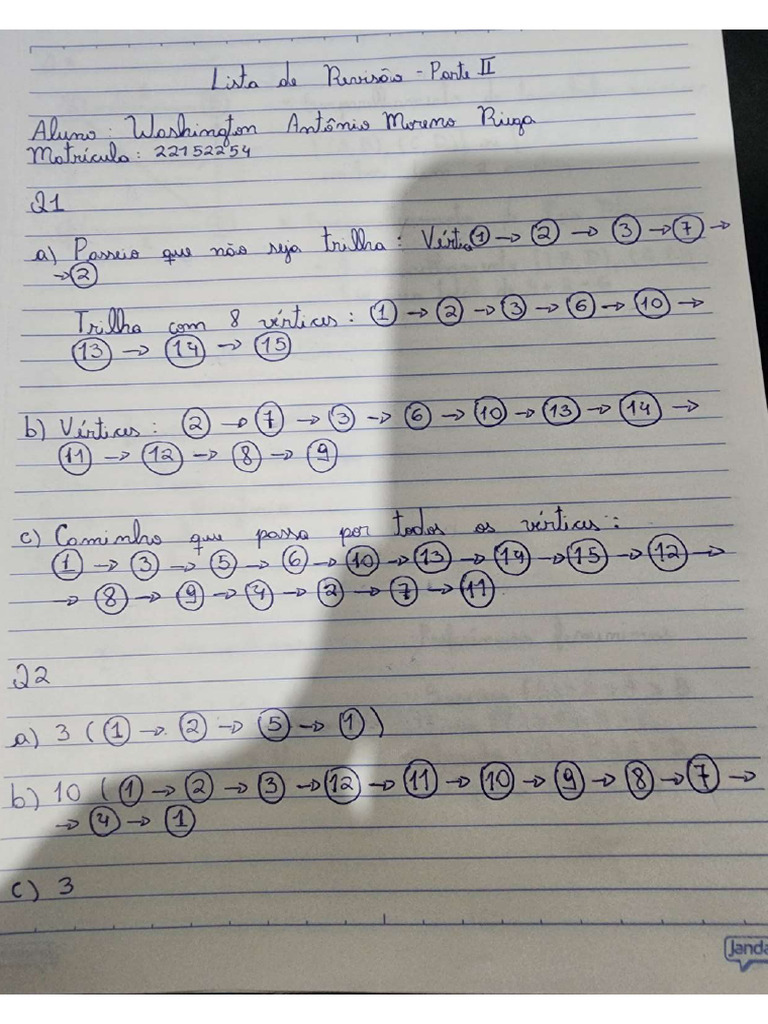 Lista de Revisão - Parte II
Aluno: Washington Antônio Moreno Riuga
Matrícula: 22152254
Q1
a) Passeio que não seja trilha: Vértic 1 → 2 → 3 → 7 →
→ 2
Trilha com 8 vértices: 1 → 2 → 3 → 6 → 10 →
13 → 14 → 15
b) Vértices: 2 → 7 → 3 → 6 → 10 → 13 → 14 →
11 → 12 → 8 → 9
c) Caminho que passa por todos os vértices:
1 → 3 → 5 → 6 → 10 → 13 → 14 → 15 → 12 →
→ 8 → 9 → 4 → 2 → 7 → 11
Q2
a) 3 (1 → 2 → 5 → 1)
b) 10 (1 → 2 → 3 → 12 → 11 → 10 → 9 → 8 → 7 →
→ 4 → 1
c) 3
Janda